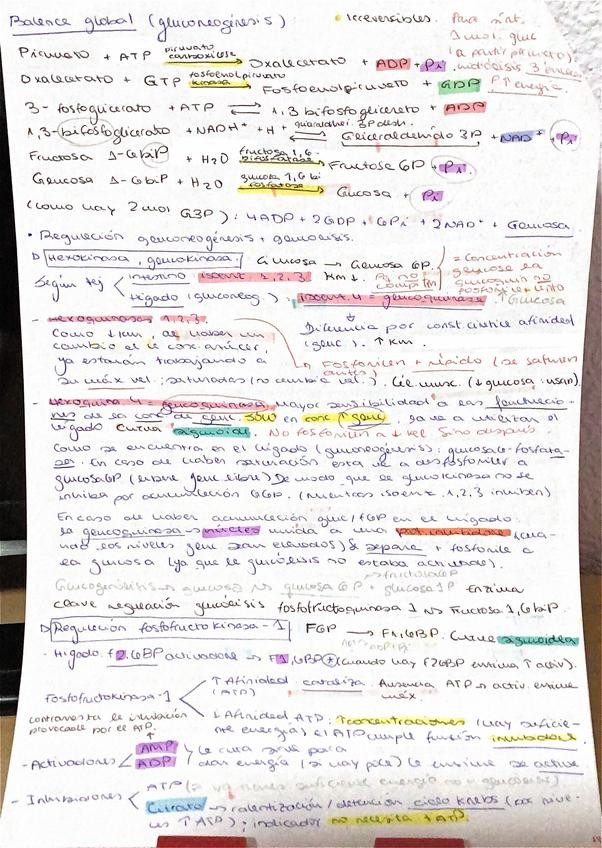 Balance global (gluconeogénesis): • Irreversibles. Para sínt.
1 mol. gluc
(a partir piruvato)
Piruvato + ATP piruvato carboxilasa Oxalacetato + ADP + Pi
Oxalacetato + GTP fosfoenolpiruvato kinasa Fosfoenolpiruvato + GDP
3-fosfoglicerato + ATP ⇌ 1,3 bifosfoglicerato + ADP
1,3-bifosfoglicerato + NADH + H+ ⇌ Gliceraldehido 3P + NAD+ + Pi
Fructosa 1-6biP + H2O fructosa 1,6-bifosfatasa Fructosa 6P + Pi
Glucosa 1-6biP + H2O glucosa 1,6 bifosfatasa Glucosa + Pi
(como hay 2 mol G3P): 4ADP + 2GDP + 6Pi + 2NAD+ + Glucosa
• Regulación gluconeogénesis + glucolisis.
Hexokinasa, glucokinasa. Glucosa → Glucosa 6P
= Concentración
Según tej intestino isoenz. 1,2,3 Km↓
Hígado (gluconeog.): isoenz. 4 = glucoquinasa ↑ Glucosa
Diferencia por const. cinética afinidad
(gluc). ↑ Km.
- Hexoquinasas 1,2,3.
Como ↓ Km al haber un
cambio el
ya estarán trabajando a
su máx vel.: saturadas (no cambia vel.)
Fosforilan + rápido (se saturan
antes)
Cél musc. (↓ glucosa, usan).
- Hexoquina 4 = glucoquinasa mayor sensibilidad a las fluctuacio-
nes de la conc. de gluc. Solo en conc ↑ gluc, se va a utilizar el
hígado Curva sigmoide. No fosforilan a ↓ vel. Sino después.
Como se encuentra en el hígado (gluconeogénesis): glucosa-6-fosfata-
sa. En caso de haber saturación esta va a desfosforilar a
glucosa6P (libere gluc. libre) De modo que la glucokinasa no se
inhiba por acumulación G6P. (mientras isoenz. 1,2,3 inhiben)
En caso de haber acumulación gluc/F6P en el hígado:
la glucoquinasa → núcleo unida a una prot. inhibidora (cua-
ndo los niveles gluc sean elevados) se separa + fosforila a
la glucosa (ya que la glucólisis no estaba activada).
→ fructosa6P
glucosa → glucosa 6P + glucosa 1P Enzima
clave regulación glucólisis fosfofructoquinasa 1 → Fructosa 1,6biP.
Regulación fosfofructokinasa-1 F6P → F1,6BP. Curva sigmoidea
- Hígado: f2,6BP activadora → F1,6BP (cuando hay F26BP enzima ↑ activ).
Fosfofructokinasa-1 ↑ Afinidad (ATP) cataliza. Ausencia ATP → activ. enzima
máx.
↓ Afinidad ATP: ↑ concentraciones (hay suficie-
nte energía) el ATP cumple función inhibidora.
contrarresta la inhibición
provocada por el ATP.
- Activadores AMP
ADP
le cual sirve para
dan energía (si hay poca) la enzima se activa
- Inhibidores ATP (si ya tienes suficiente energía no → glucolisis)
Citrato → ralentización/detención ciclo Krebs (por nive-
les ↑ ATP); indicador no necesita + ATP.